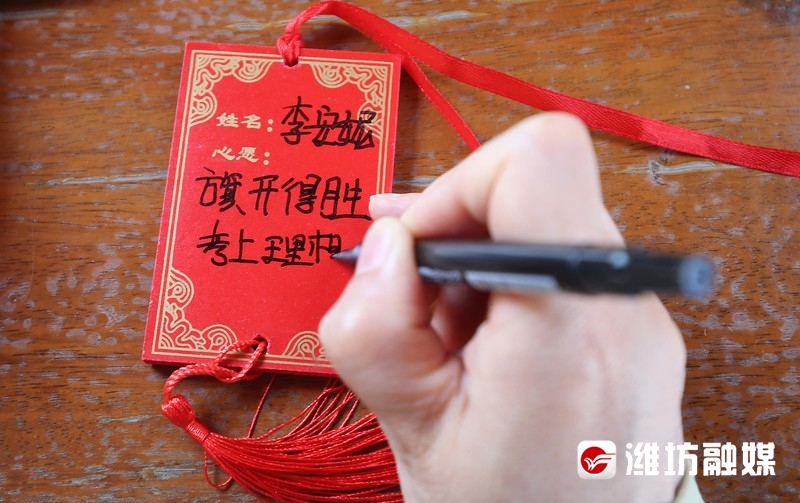 姓名：李安妮
心愿：
旗开得胜
考上理想
潍坊融媒